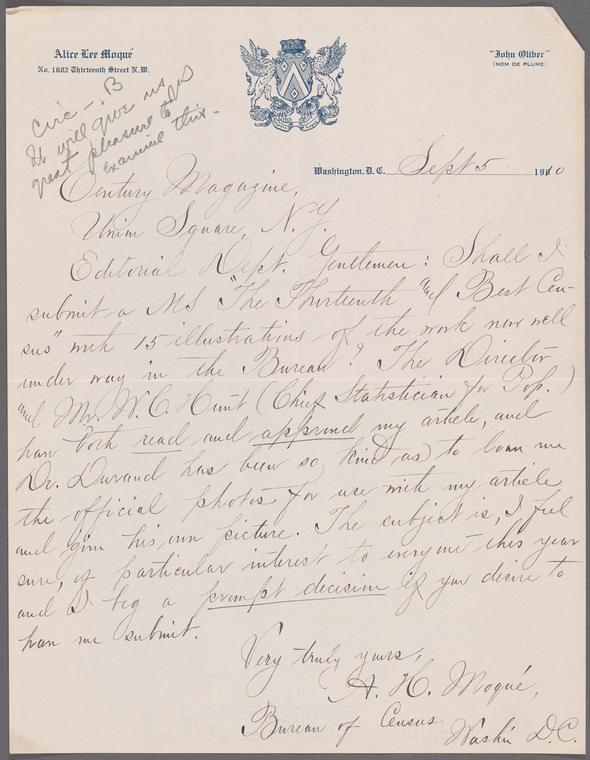 Alice Lee Moqué
No. 1602 Thirteenth Street N.W.
"John Oliver"
(NOM DE PLUME)
Circ - B
It will give us
great pleasure to
examine this -
Washington, D.C. Sept 5 1910
Century Magazine,
Union Square, N.Y.
Editorial Dept. Gentlemen: Shall I
submit a MS "The Thirteenth and Best Cen-
sus" with 15 illustrations of the work now well
under way in the Bureau? The Director
and Mr. W. C. Hunt (Chief Statistician for Pop.)
have both read and approved my article, and
Dr. Durand has been so kind as to loan me
the official photos for use with my article
and give his own picture. The subject is, I feel
sure, of particular interest to everyone this year
and I beg a prompt decision if you desire to
have me submit.
Very truly yours,
A. H. Moqué,
Bureau of Census
Washn D.C.